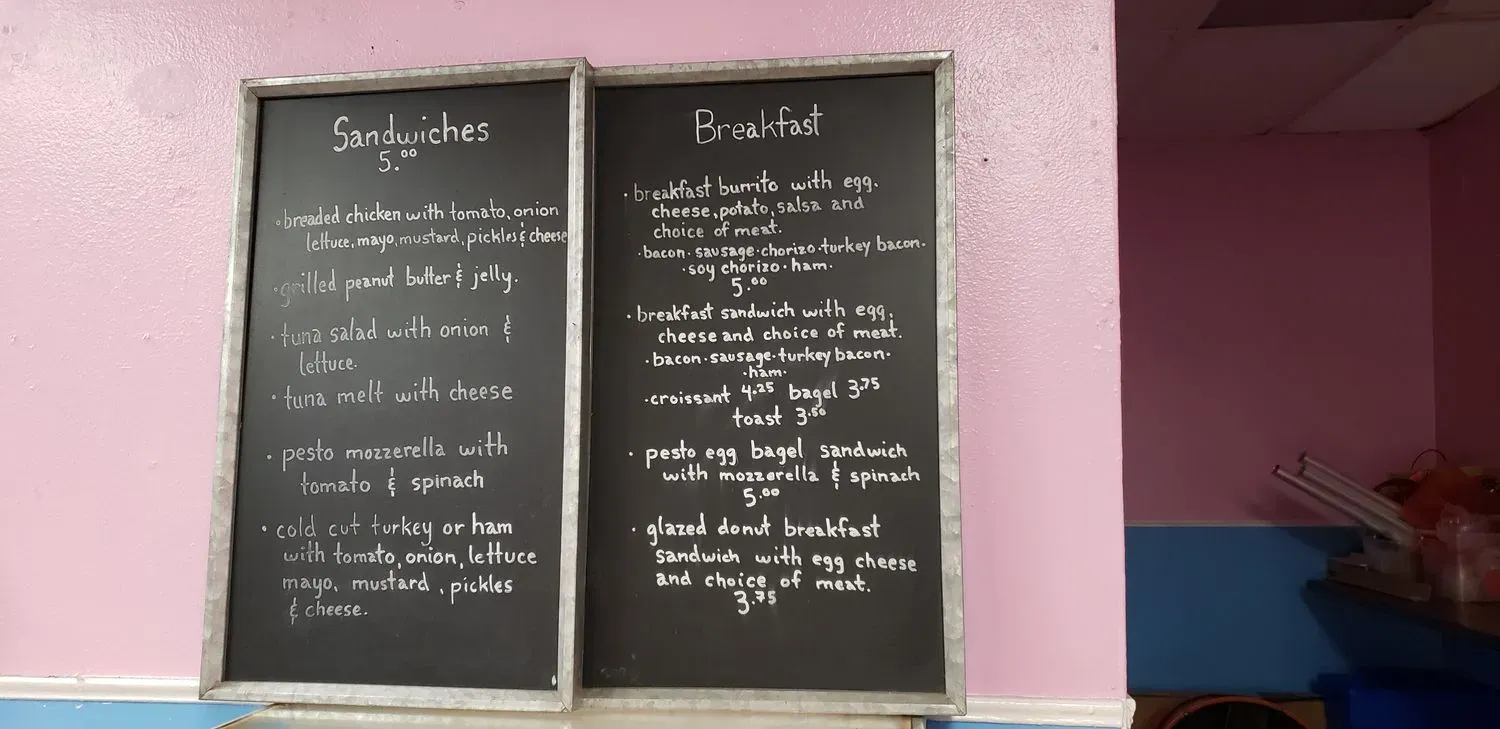 Sandwiches
5.00
• breaded chicken with tomato, onion
lettuce, mayo, mustard, pickles & cheese
• grilled peanut butter & jelly.
• tuna salad with onion &
lettuce.
• tuna melt with cheese
• pesto mozzerella with
tomato & spinach
• cold cut turkey or ham
with tomato, onion, lettuce
mayo, mustard, pickles
& cheese.
Breakfast
• breakfast burrito with egg.
cheese, potato, salsa and
choice of meat.
• bacon • sausage • chorizo • turkey bacon •
• soy chorizo • ham •
5.00
• breakfast sandwich with egg,
cheese and choice of meat.
• bacon • sausage • turkey bacon •
• ham •
• croissant 4.25 bagel 3.75
toast 3.50
• pesto egg bagel sandwich
with mozzerella & spinach
5.00
• glazed donut breakfast
sandwich with egg cheese
and choice of meat.
3.75